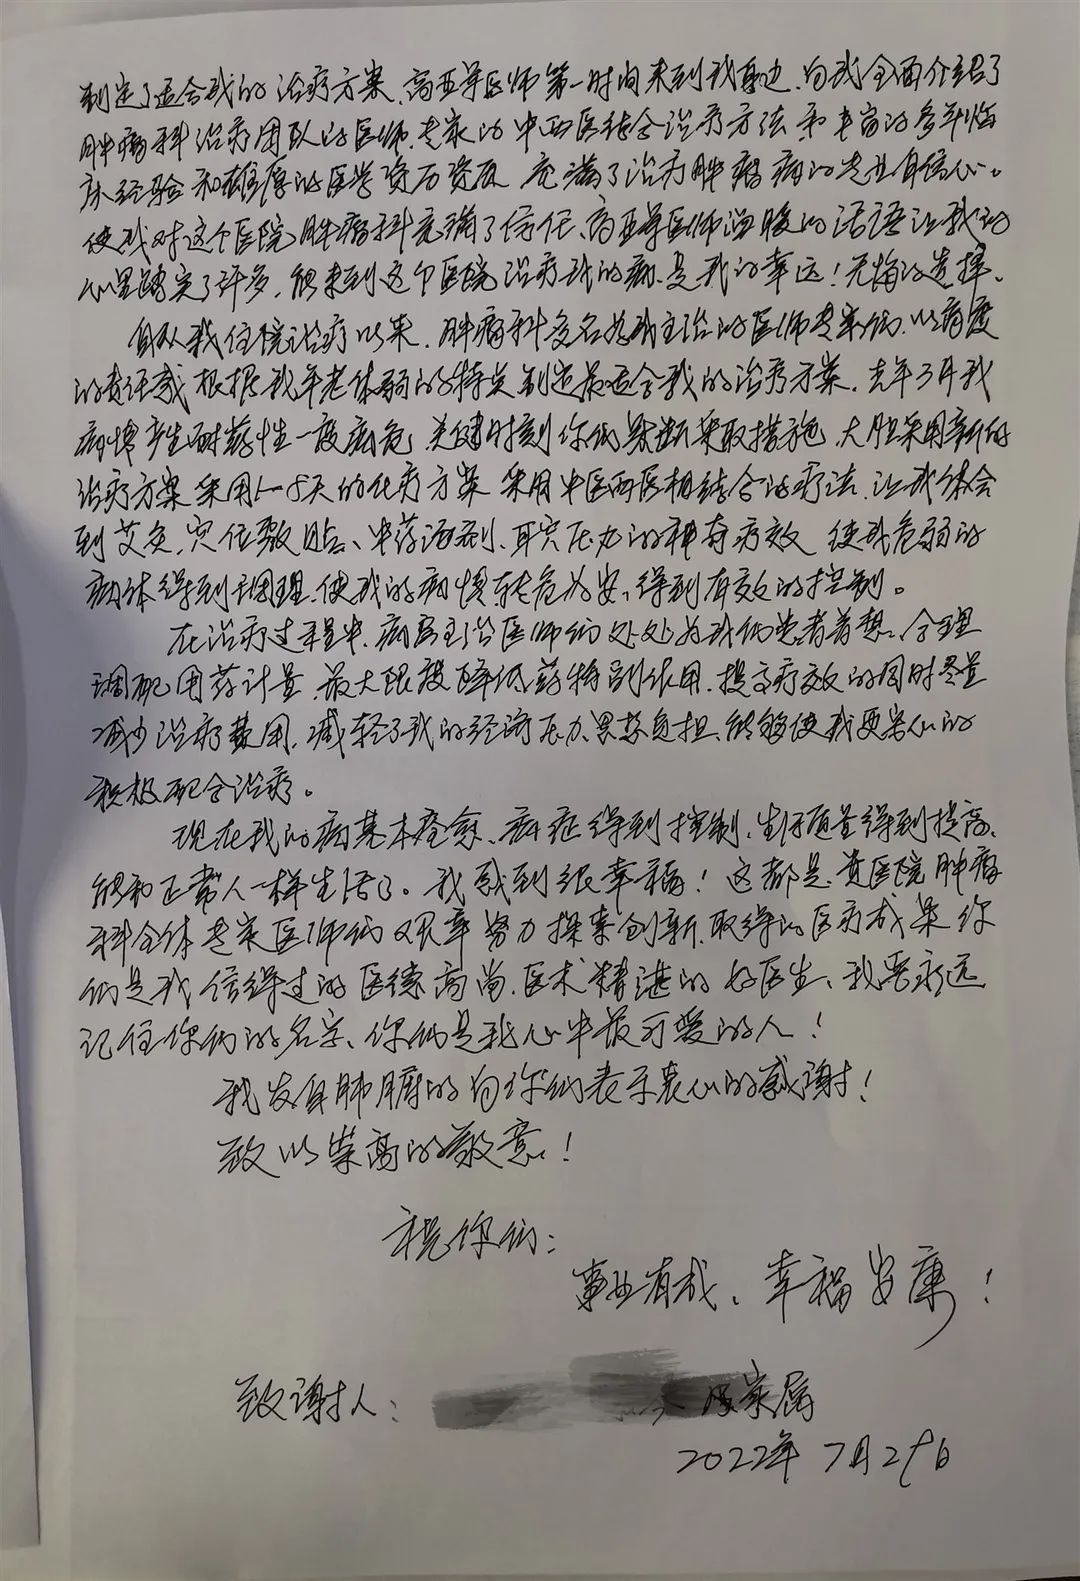 制定了适合我的治疗方案、高亚军医师第一时间来到我身边、向我全面介绍了
肿瘤科治疗团队的医师、专家的中西医结合治疗方法和丰富的多年临
床经验和雄厚的医学资历资质 充满了治疗肿瘤病的专业自信心。
使我对这个医院肿瘤科充满了信任、高亚军医师温暖的话语让我的
心里踏实了许多，能来到这个医院治疗我的病、是我的幸运！无悔的选择、
自从我住院治疗以来、肿瘤科多名为我主治的医师专家们、以高度
的责任感 根据我年老体弱的特点 制定最适合我的治疗方案、去年3月我
病情产生耐药性一度病危，关健时刻你们果断采取措施、大胆采用新的
治疗方案 采用1-5天的化疗方案 采用中医西医相结合的疗法、让我体会
到艾灸、穴位敷贴、中药汤剂、耳穴压力的神奇疗效 使我危弱的
病体得到了调理、使我的病情转危为安、得到有效的控制。
在治疗过程中、病房主治医师们处处为我们患者着想、合理
调配用药计量、最大限度降低药物副作用、提高疗效的同时尽量
减少治疗费用、减轻了我的经济压力、思想负担、能够使我更安心的
积极配合治疗。
现在我的病基本痊愈、病症得到控制、生活质量得到提高、
能和正常人一样生活了。我感到很幸福！这都是贵医院肿瘤
科全体专家医师们艰辛努力探索创新、取得的医疗成果 你
们是我信得过的医德高尚、医术精湛的好医生、我要永远
记住你们的名字、你们是我心中最可爱的人！
我发自肺腑的向你们表示衷心的感谢！
致以崇高的敬意！
祝你们：
事业有成、幸福安康！
致谢人： 家属
2022年7月29日